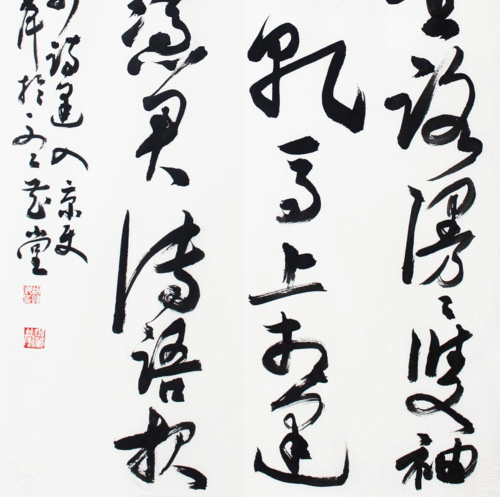 路漫々雙袖
乾馬上相逢
憑君傳語報
詩逢入京使
於
堂